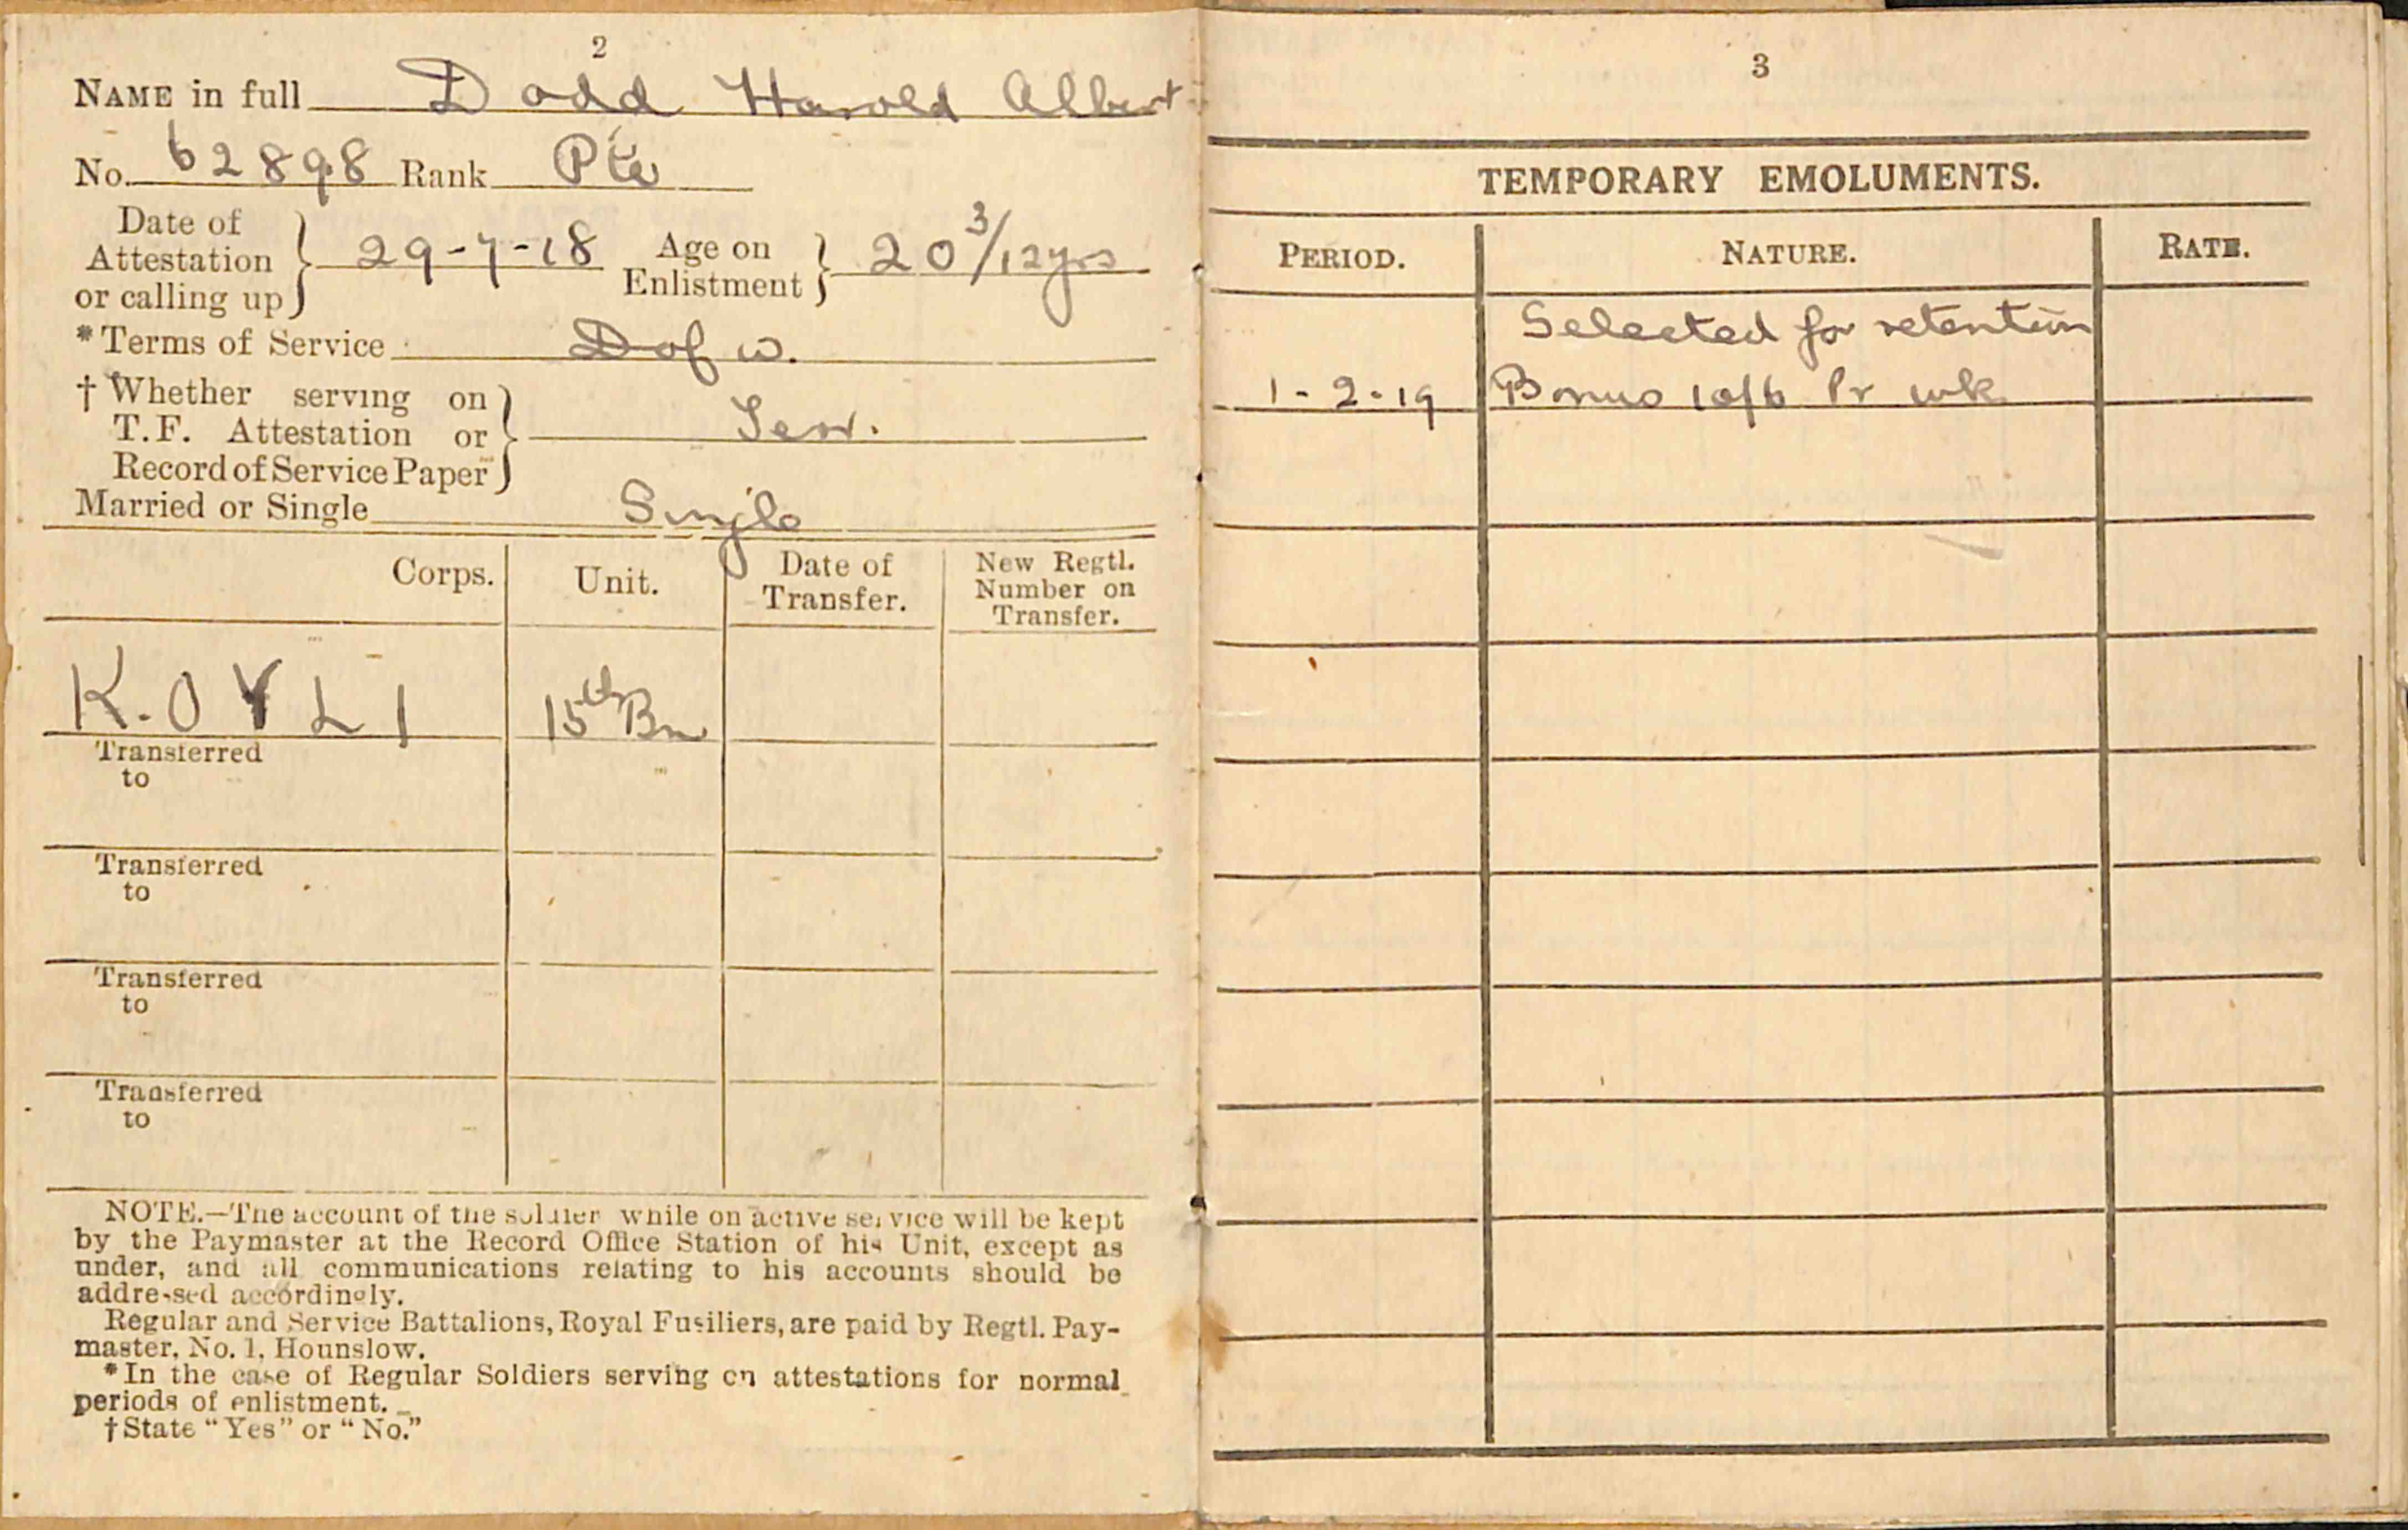 2
NAME in full Dodd Harold Albert
No. 62898 Rank Pte
Date of Attestation or calling up } 29-7-18 Age on Enlistment } 20 3/12 yrs
*Terms of Service D of W.
† Whether serving on
T.F. Attestation or
Record of Service Paper }
Married or Single Single
Corps. Unit. Date of Transfer. New Regtl. Number on Transfer.
K.O Y L I 15th Bn
Transferred
to
Transferred
to
Transferred
to
Transferred
to
NOTE.—The account of the soldier while on active service will be kept
by the Paymaster at the Record Office Station of his Unit, except as
under, and all communications relating to his accounts should be
addressed accordingly.
Regular and Service Battalions, Royal Fusiliers, are paid by Regtl. Pay-
master, No. 1, Hounslow.
*In the case of Regular Soldiers serving on attestations for normal
periods of enlistment.
†State "Yes" or "No."
3
TEMPORARY EMOLUMENTS.
PERIOD. NATURE. RATE.
Selected for retention
1-2-19 Bonus 10/6 Pr wk